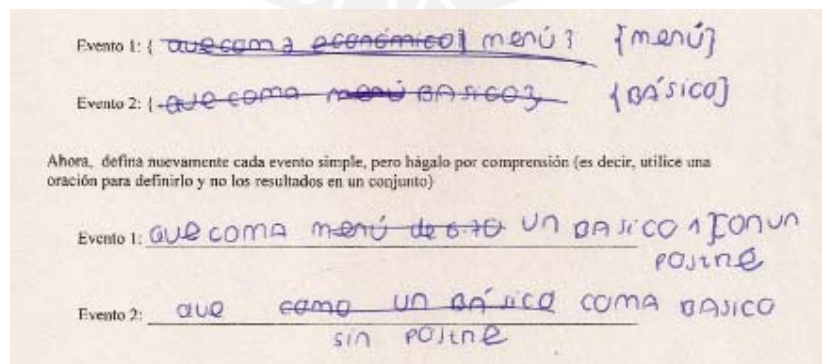 Evento 1: { que coma económico} menú } {menú}
Evento 2: { que coma menú BASICO}, {BÁSICO}
Ahora, defina nuevamente cada evento simple, pero hágalo por comprensión (es decir, utilice una
oración para definirlo y no los resultados en un conjunto)
Evento 1: que coma menú de 6.70 un BASICO 1 con un
postre
Evento 2: que como un básico coma BASICO
sin postre